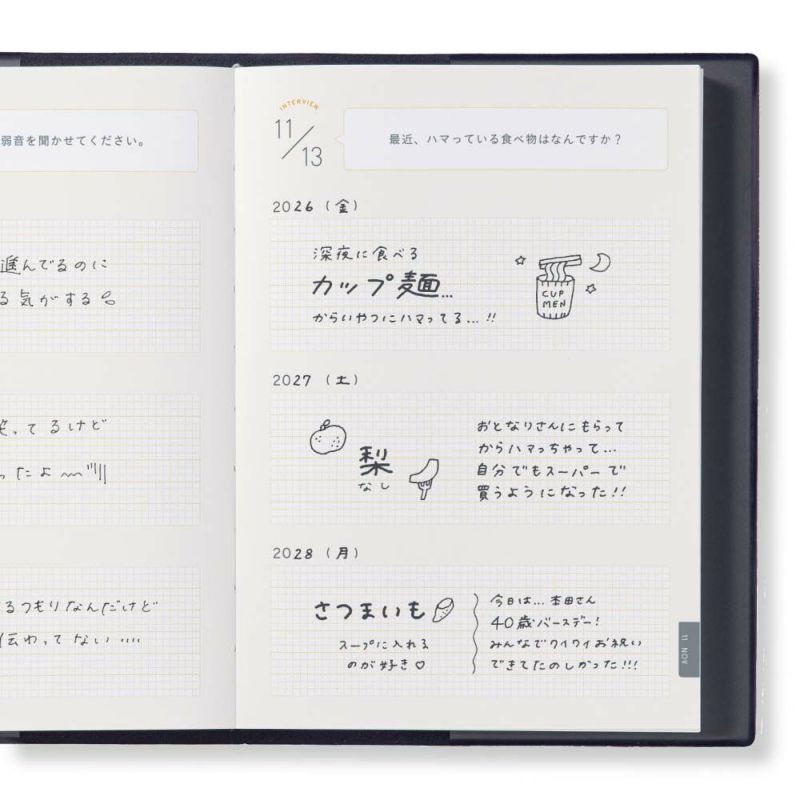 弱音を聞かせてください。
進んでるのに
る気がする
てるけど
ったよ
るつもりなんだけど
伝わってない....
INTERVIEW
11/13
最近、ハマっている食べ物はなんですか？
2026 (金)
深夜に食べる
カップ麺...
からいやつにハマってる...!!
CUP
MEN
2027 (土)
梨
なし
おとなりさんにもらって
からハマっちゃって...
自分でもスーパーで
買うようになった!!
2028 (月)
さつまいも
スープに入れる
のが好き♡
今日は...本田さん
40歳バースデー!
みんなでワイワイお祝い
できてたのしかった!!!
11 NOV